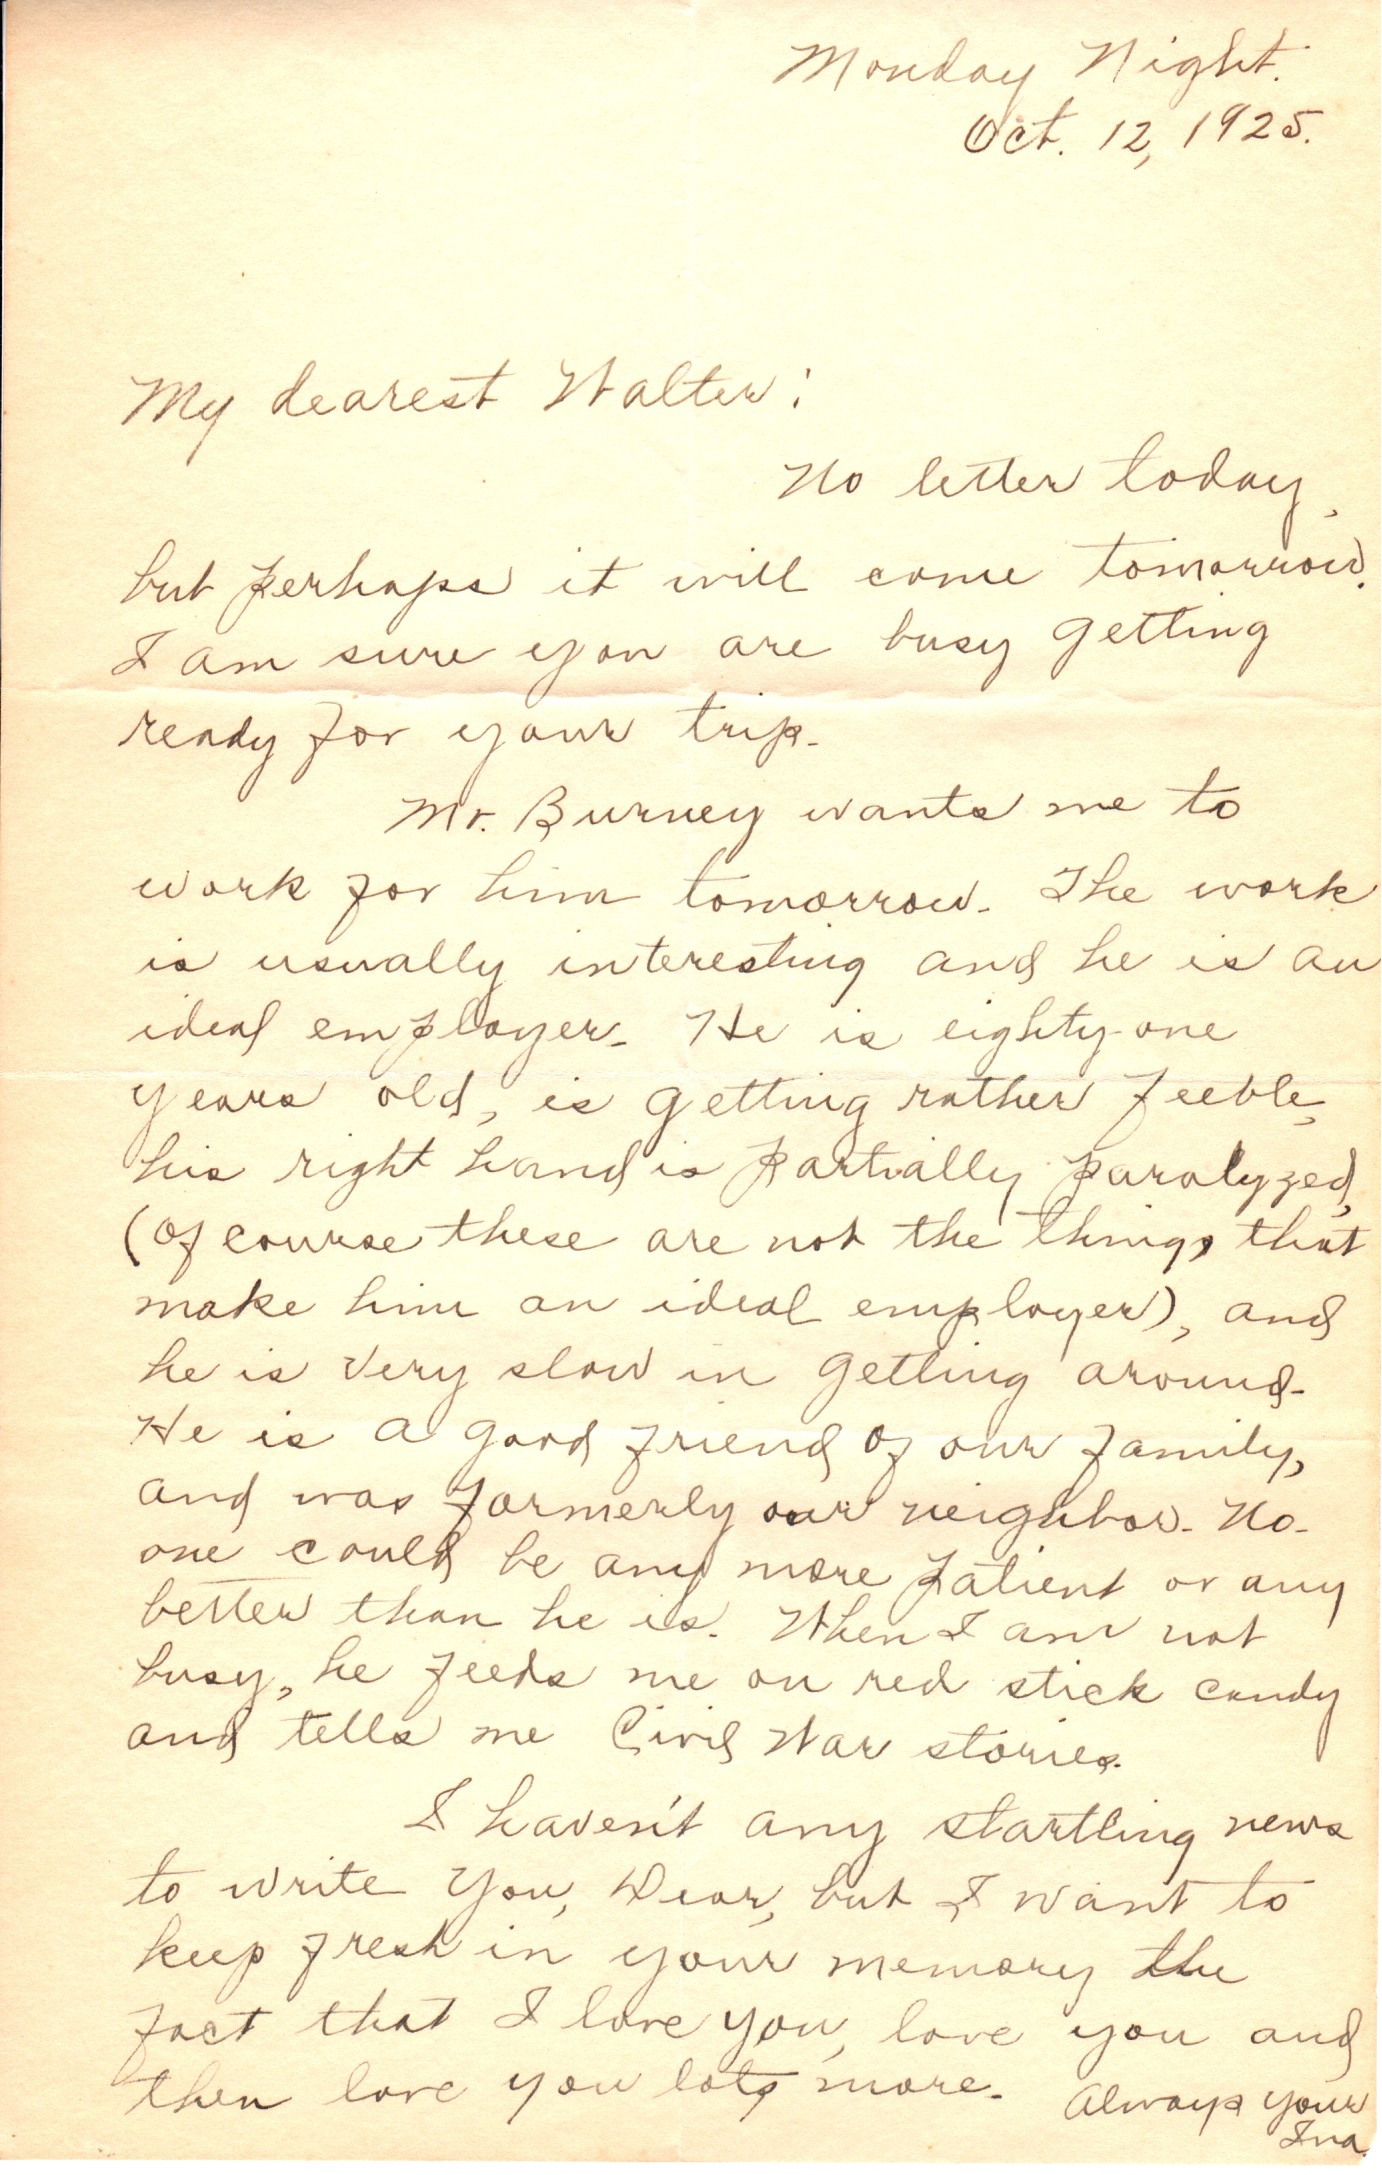 Monday Night.
Oct. 12, 1925.
My dearest Walter:
No letter today,
but perhaps it will come tomorrow.
I am sure you are busy getting
ready for your trip.
Mr. Burney wants me to
work for him tomorrow. The work
is usually interesting and he is an
ideal employer. He is eighty-one
years old, is getting rather feeble,
his right hand is partially paralyzed,
(of course these are not the things that
make him an ideal employer), and
he is very slow in getting around.
He is a good friend of our family,
and was formerly our neighbor. No-
one could be any more patient or any
better than he is. When I am not
busy, he feeds me on red stick candy
and tells me Civil War stories.
I haven't any startling news
to write you, Dear, but I want to
keep fresh in your memory the
fact that I love you, love you and
then love you lots more. Always your
Ina.